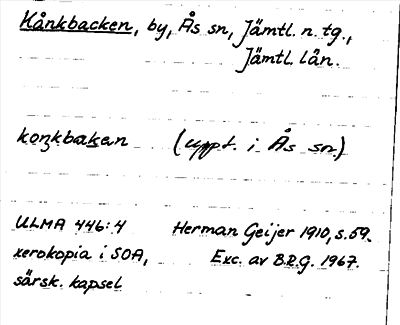 Kånkbacken, by, Ås sn, Jämtl. n. tg.,
Jämtl. län.
koŋkbaken (uppt. i Ås sn.)
ULMA 446:4 Herman Geijer 1910, s. 59.
xerokopia i SOA, Exc. av B.R.G. 1967.
särsk. kapsel